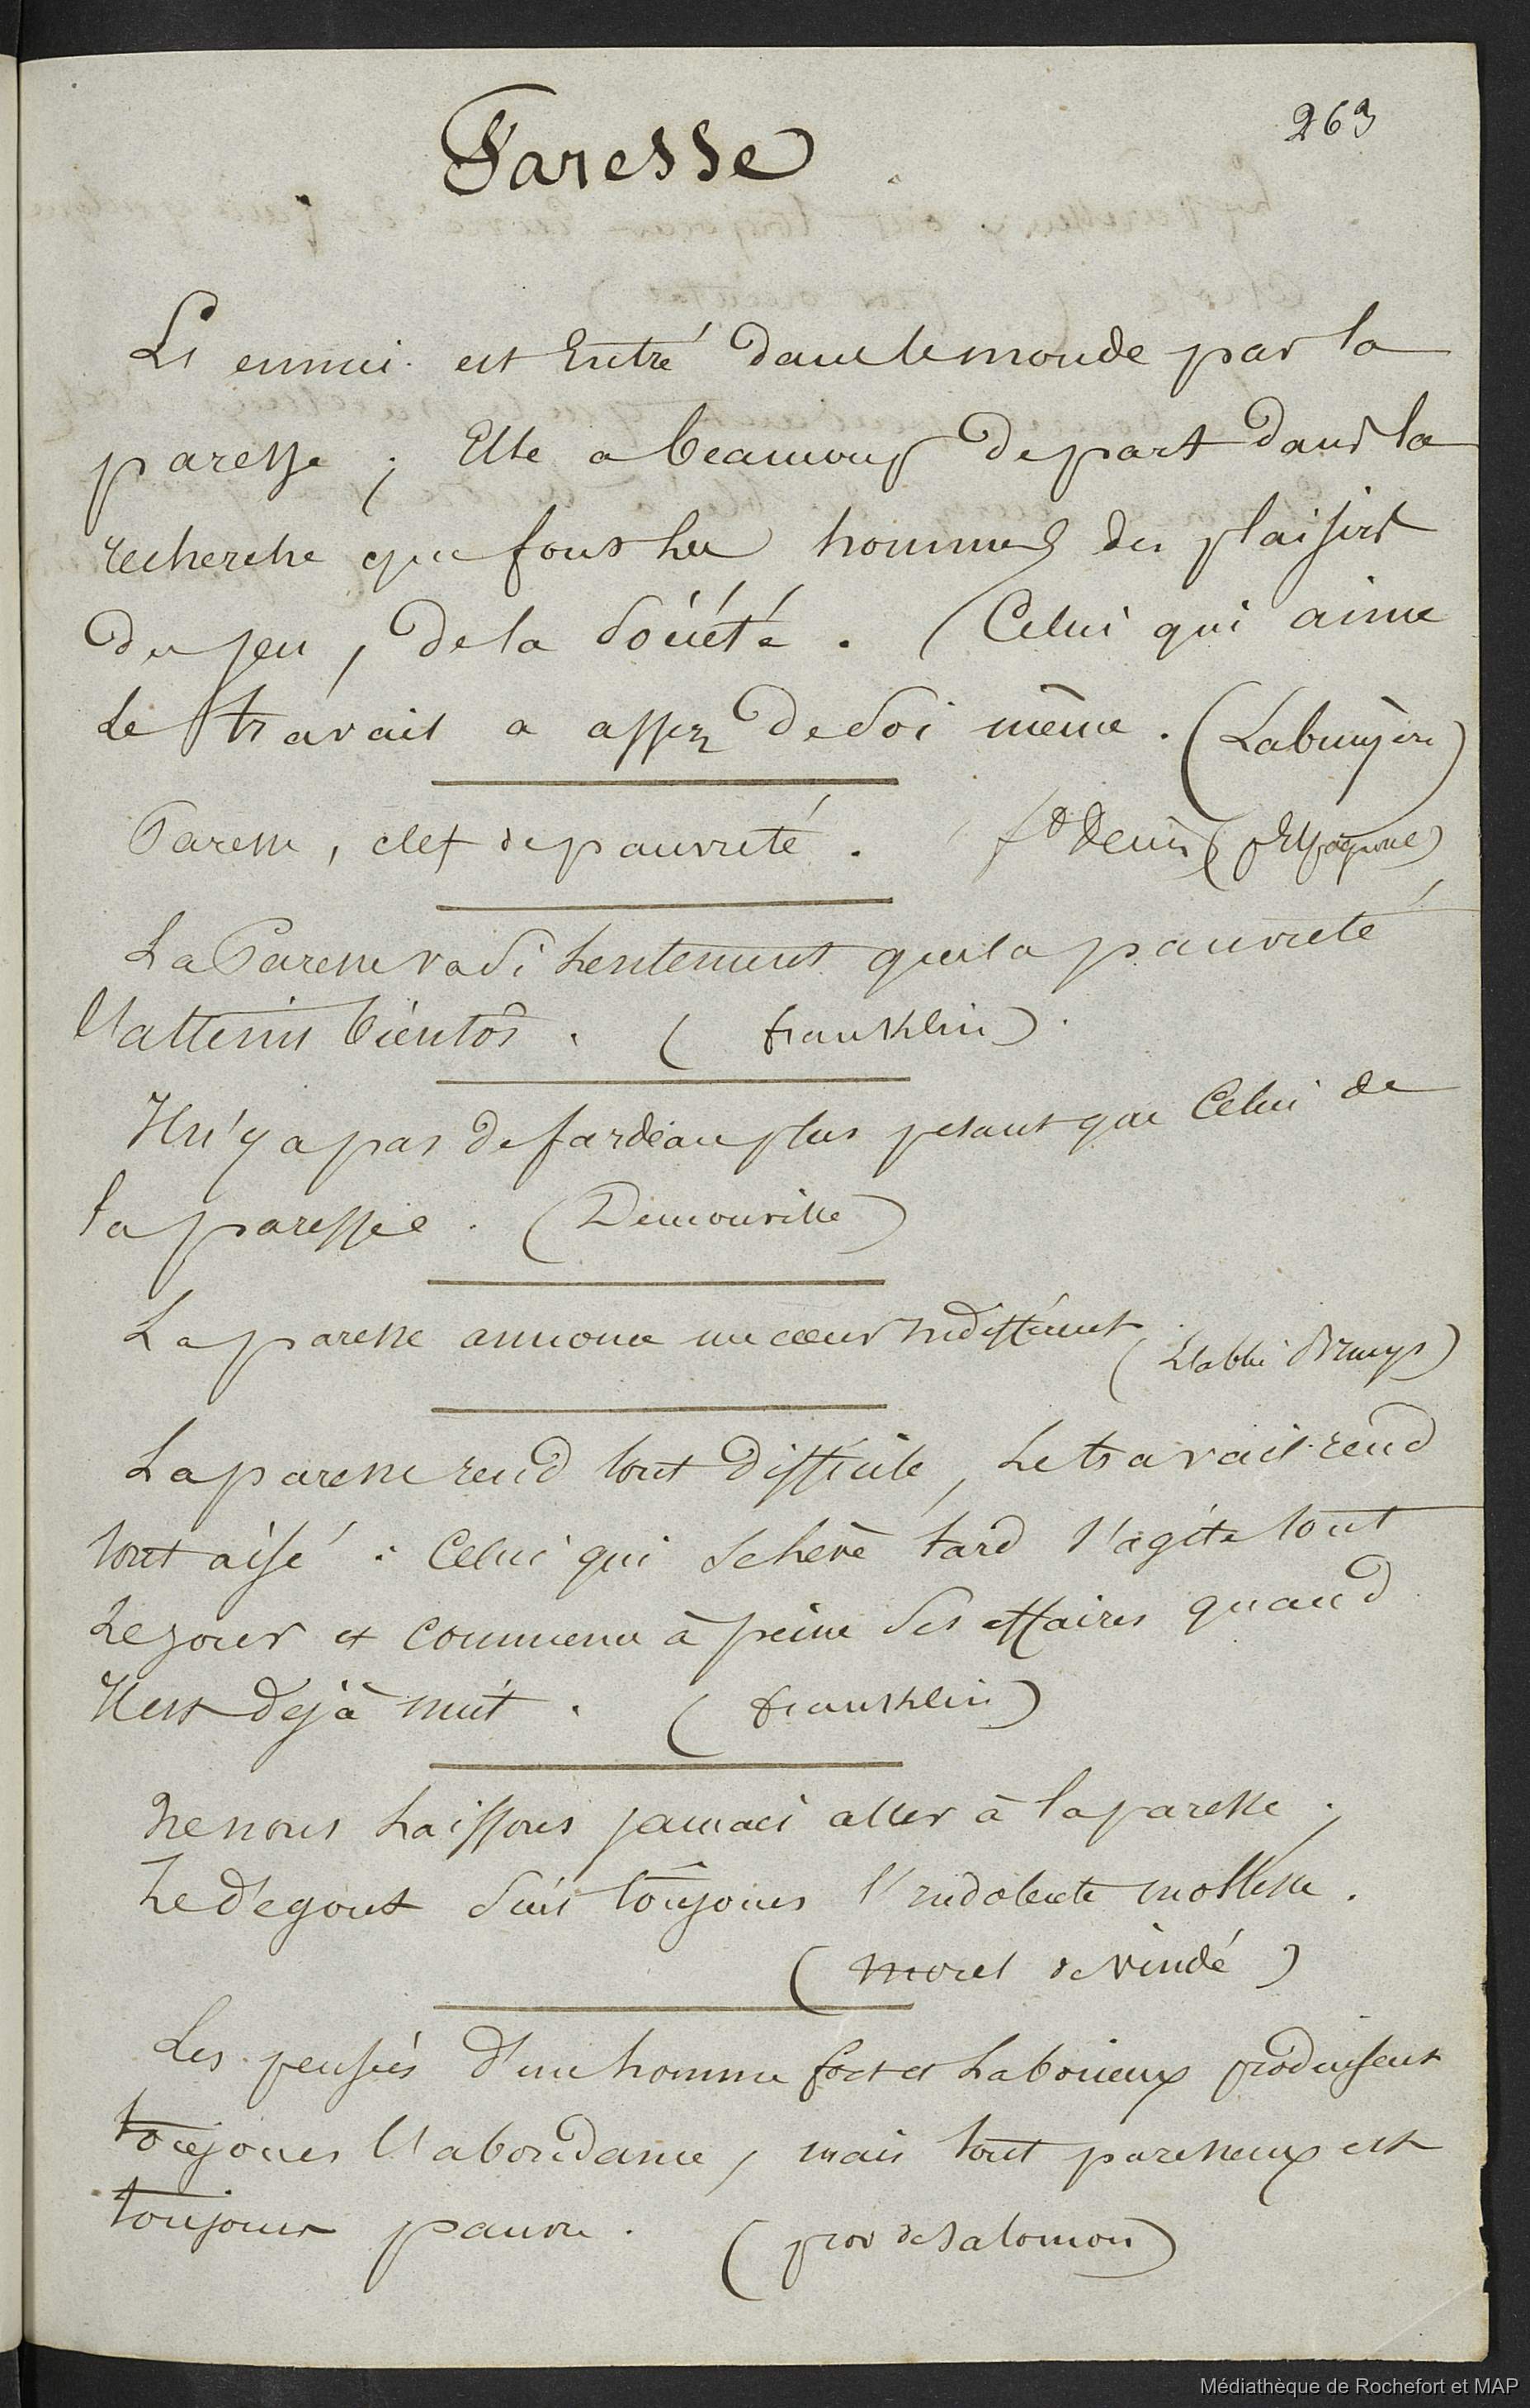 263
Paresse
L'ennui est Entré dans le monde par la
paresse ; Elle a beaucoup de part dans la
recherche que font les hommes des plaisirs
du jeu, de la Société . (Celui qui aime
Le travail a assez de Soi même . (Labruyère)
Paresse, clef de pauvreté . fd Denis (pr Espagnol)
La Paresse va Si Lentement que la pauvreté
l'atteint bientôt . ( franklin ) .
Il n'y a pas de fardeau plus pesant que Celui de
la paresse . (Demonville)
La paresse annonce un cœur Indifférent . (L'abbé Brueys)
La paresse rend tout Difficile, Le travail rend
tout aisé : Celui qui Se Lève tard s'agite tout
Le jour et commence à peine Ses affaires quand
Il est déjà nuit . ( franklin )
Ne nous Laissons jamais aller à la paresse .
Le dégout Suit toujours l'indolente mollesse .
( morel de vindé )
Les pensées d'un homme fort et Laborieux produisent
toujours l'abondance, mais tout paresseux est
toujours pauvre . ( prov de Salomon )
Médiathèque de Rochefort et MAP